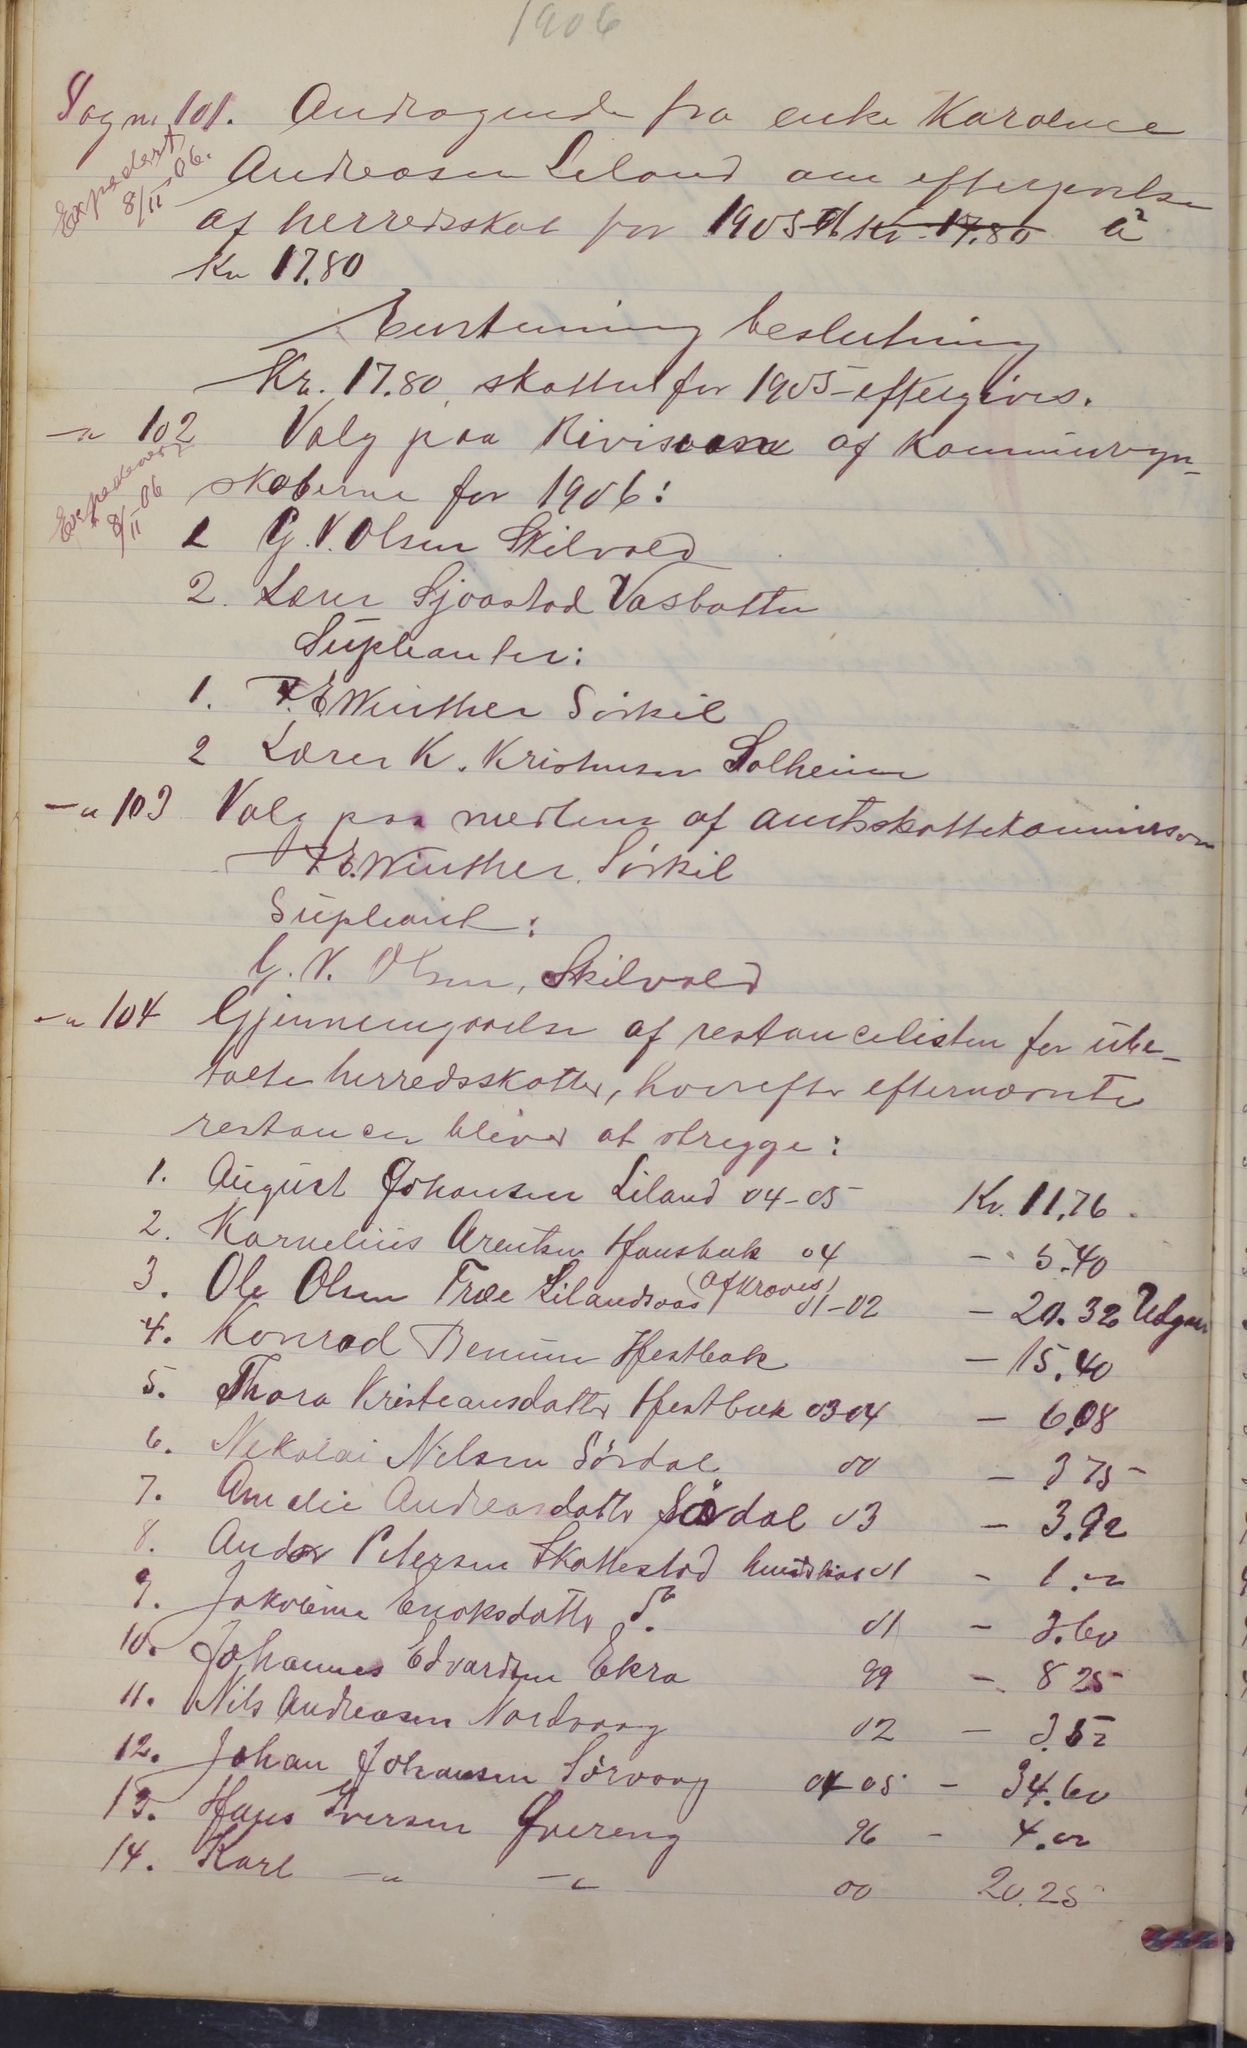 1906
Sag nr 101. Andragende fra enke Karolence
Expedert 8/11-06.
Andreasen Liland om eftergivelse
af herredsskat for 1905 at kr. 17.80 á
Kr 17.80
Enstemmig beslutning
Kr. 17.80 skattut for 1905 eftergives.
-"- 102 Valg paa Revisorer af Kommuneregn-
Expederet 8/11-06
skaberne for 1906:
1 G. V. Olsen Skilvold
2. Lærer Sjaastad Vasbotten
Supleanter:
1. F. E. Winther Sørkil
2 Lærer K. Kristensen Solheim
-"- 103 Valg paa medlem af amtsskattekommission
F. E. Winther, Sørkil
Supleant:
G. V. Olsen, Skilvold
-"- 104 Gjennemgaaelse af restancelisten for ube-
talte herredsskatter, hvorefter efternævnte
restancer bliver at stryge:
1. August Johansen Liland 04-05 Kr. 11,76.
2. Kornelius Arentsen Hansbak 04 - 5.40
3. Ole Olsen Træe Lilandsaas (afkræves) 01-02 - 20.32 Udgaar
4. Konrad Benum Hestbak - 15.40
5. Thora Kristiansdatter Hestbak 03 04 - 6,08
6. Nikolai Nilsen Sørdal 00 - 3 75
7. Amalie Andreasdatter Sördal 03 - 3.92
8. Andor Petersen Skattestad hundskat 01 - 1.00
9. Jakobina Enoksdatter do. 01 - 3.60
10. Johannes Edvardsen Ekra 99 - 8 25
11. Nils Andreasen Nordvaag 02 - 3.52
12. Johan Johansen Sørvaag 04 05 - 34.60
13. Hans Iversen Øvereng 96 - 4.00
14. Karl -"- -"- 00 20.25